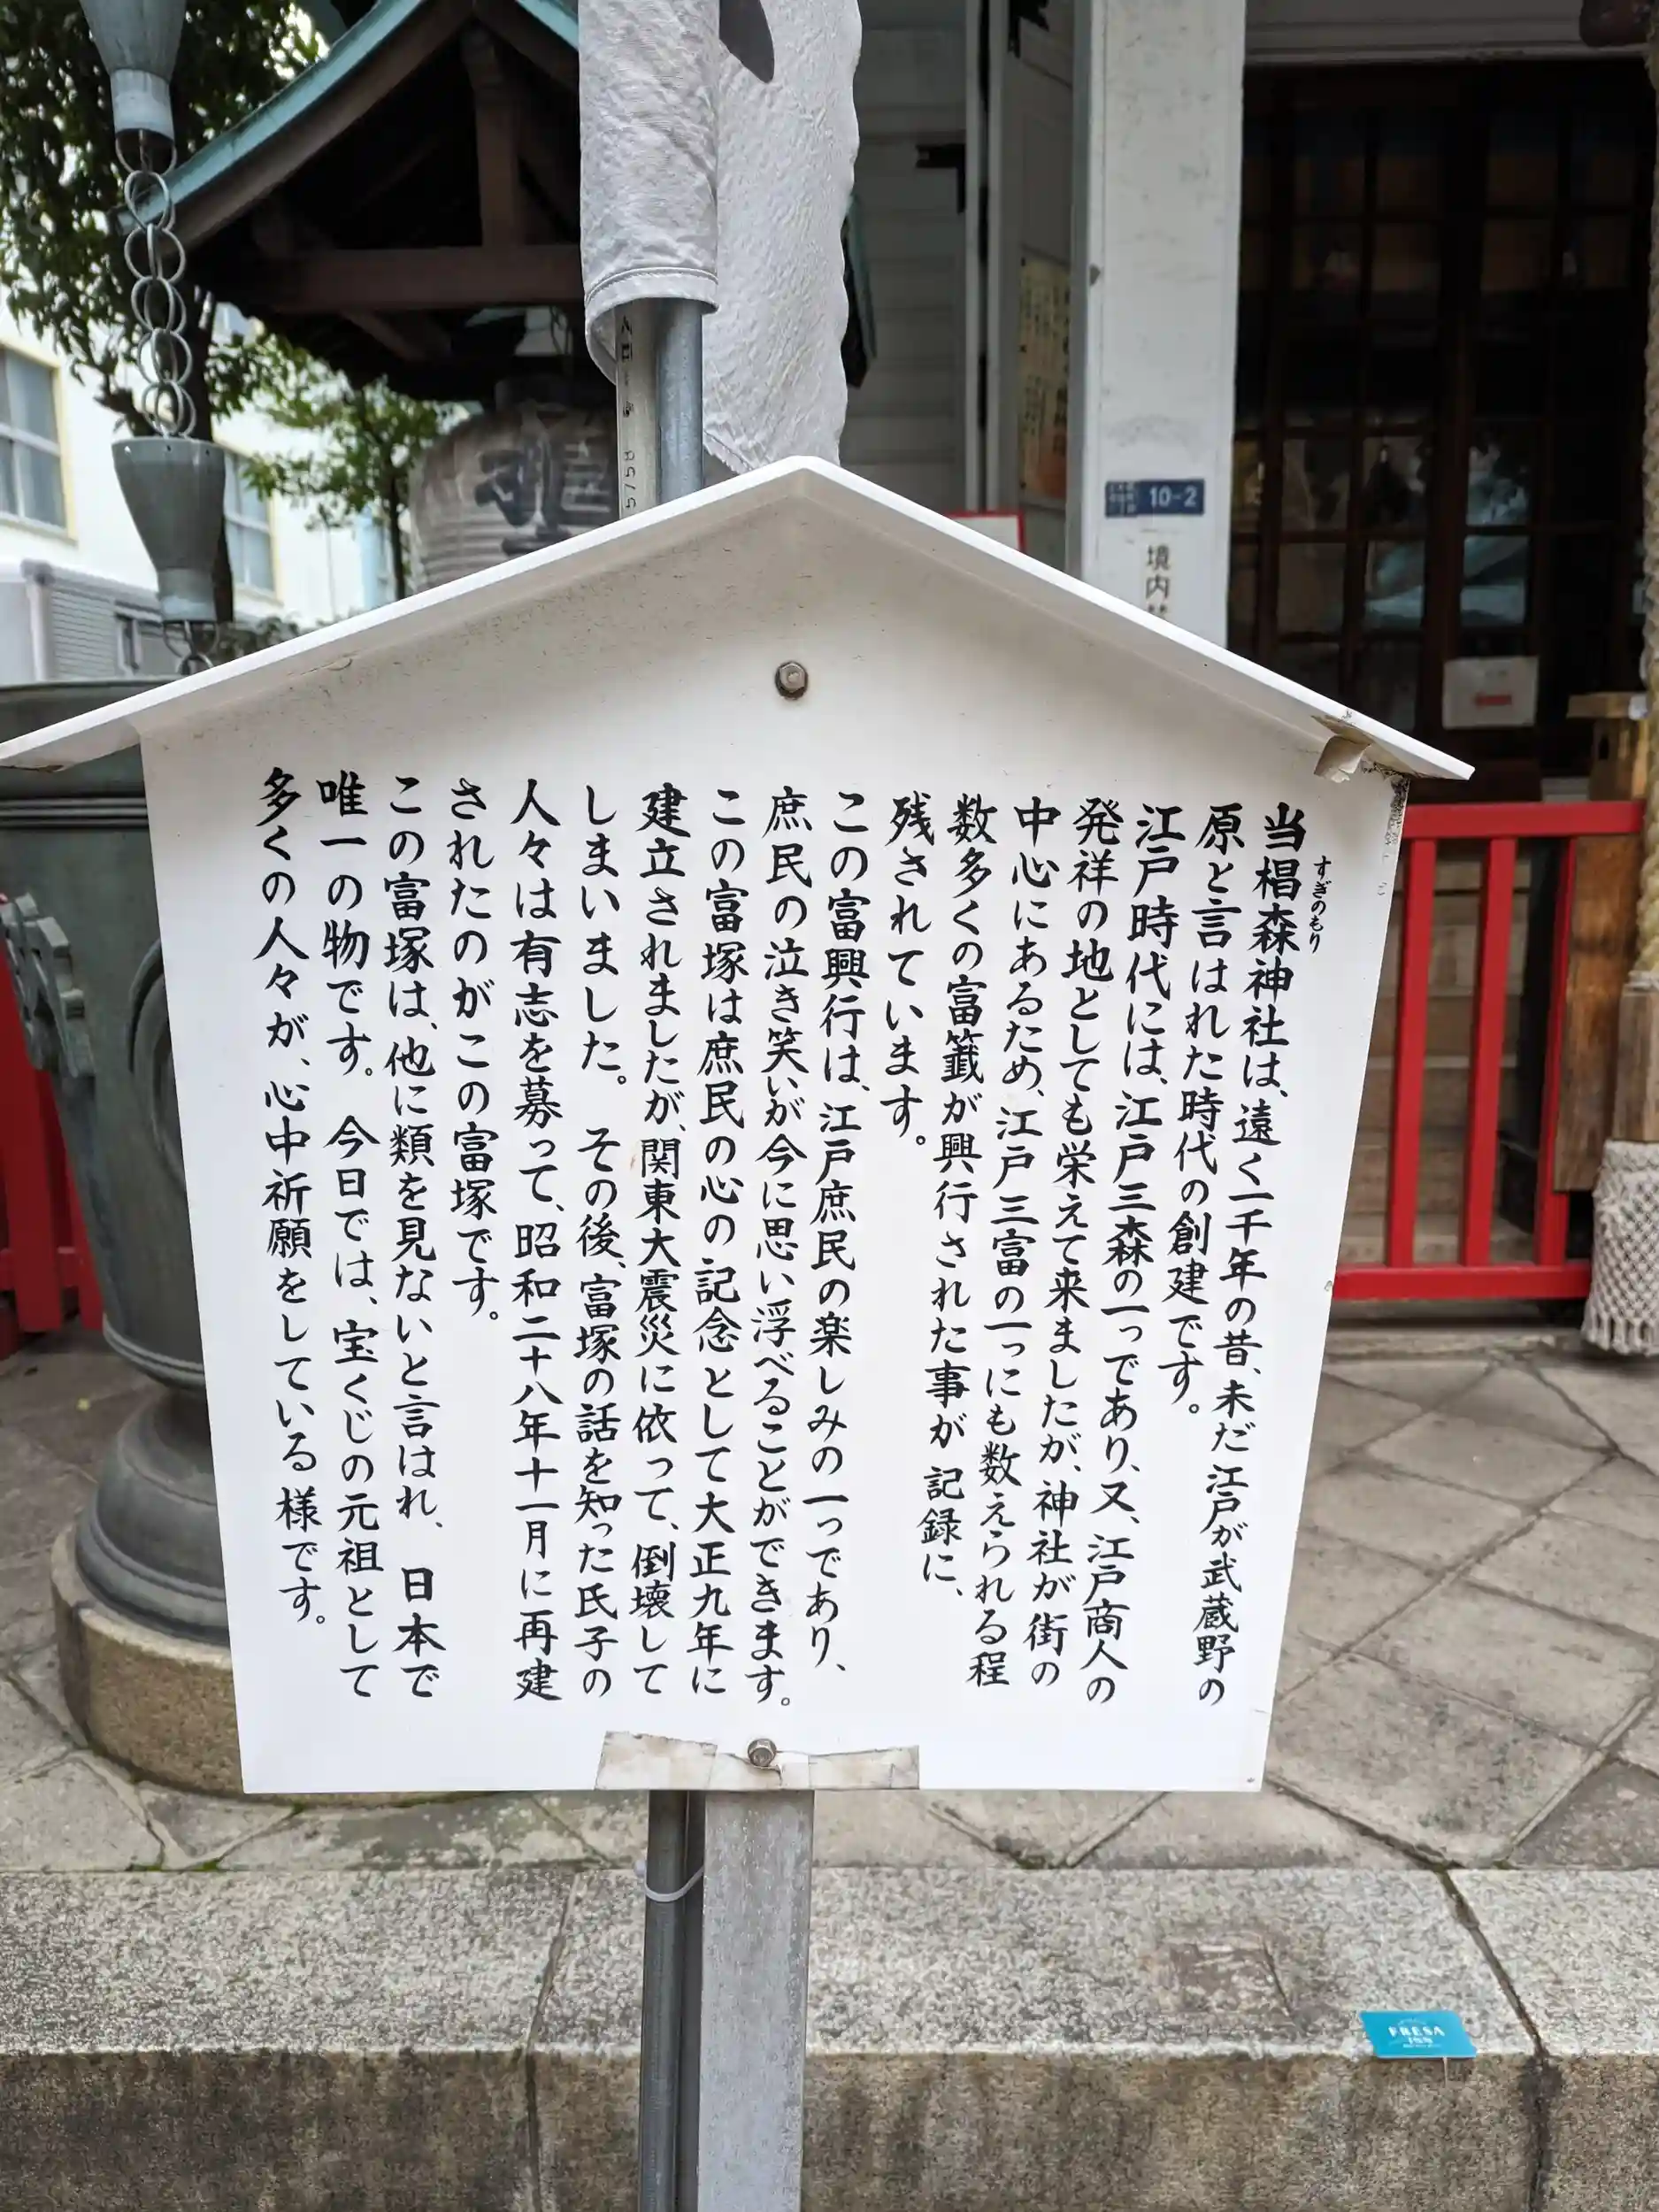 当椙森神社は、遠く一千年の昔、未だ江戸が武蔵野の
すぎのもり
原と言はれた時代の創建です。
江戸時代には、江戸三森の一つであり、又、江戸商人の
発祥の地としても栄えて来ましたが、神社が街の
中心にあるため、江戸三富の一つにも数えられる程
数多くの富籤が興行された事が記録に、
残されています。
この富興行は、江戸庶民の楽しみの一つであり、
庶民の泣き笑いが今に思い浮べることができます。
この富塚は庶民の心の記念として大正九年に
建立されましたが、関東大震災に依って、倒壊して
しまいました。その後、富塚の話を知った氏子の
人々は有志を募って、昭和二十八年十一月に再建
されたのがこの富塚です。
この富塚は、他に類を見ないと言はれ、日本で
唯一の物です。今日では、宝くじの元祖として
多くの人々が、心中祈願をしている様です。
10-2
境内
5758
FRESA
INN